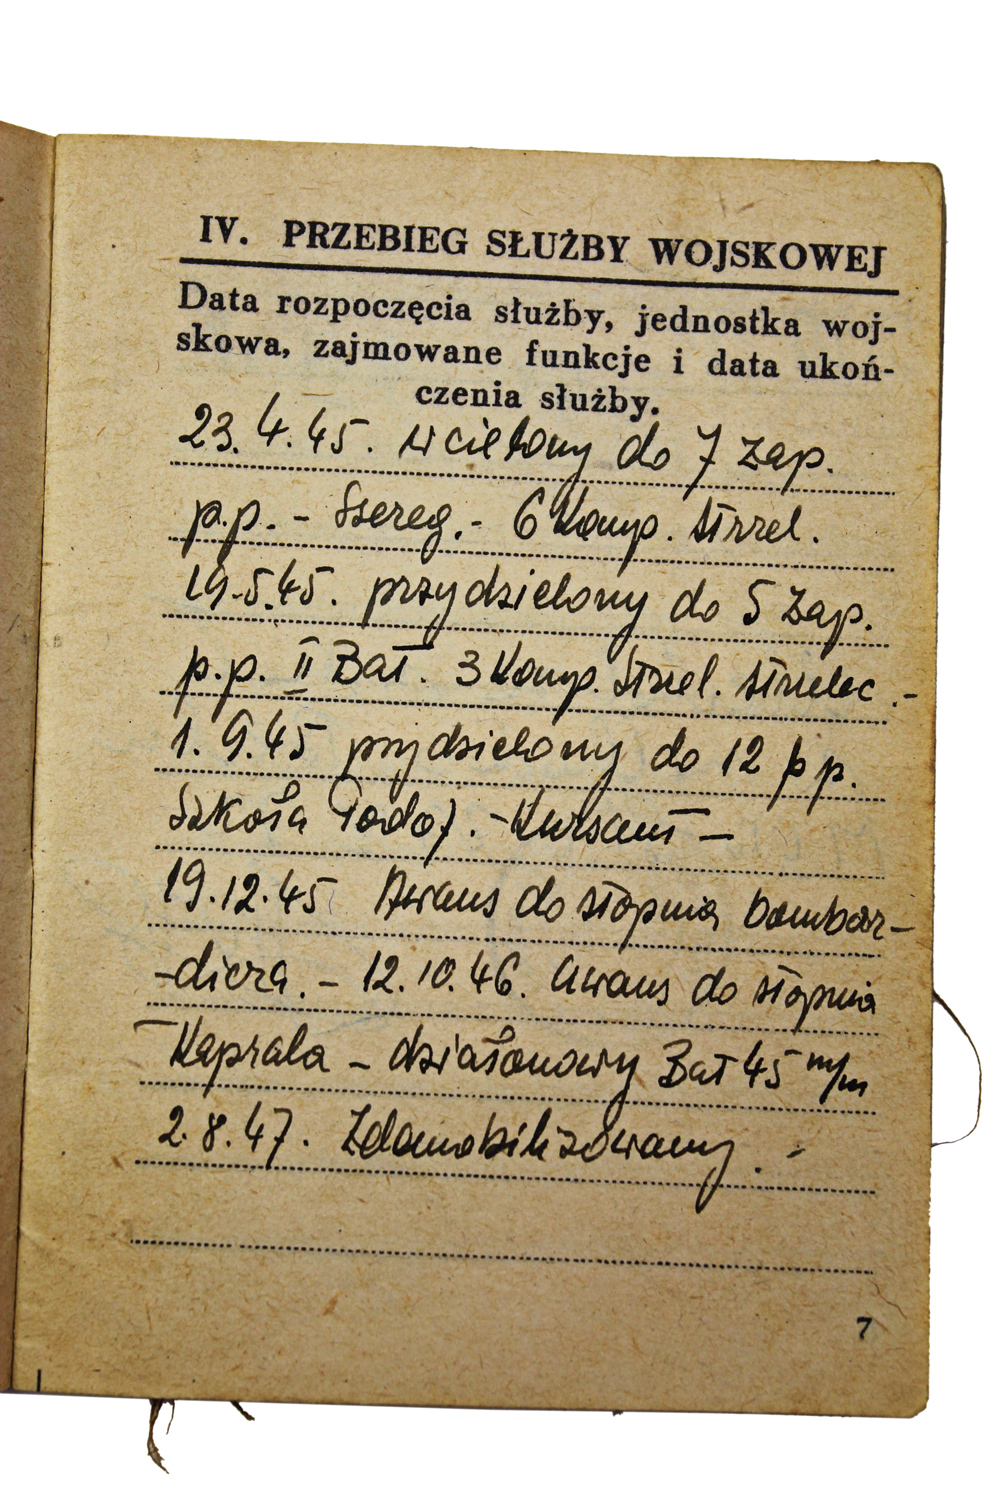 IV. PRZEBIEG SŁUŻBY WOJSKOWEJ
Data rozpoczęcia służby, jednostka woj-
skowa, zajmowane funkcje i data ukoń-
czenia służby.
23.4.45. wcielony do 7 zap.
p.p. - Szereg. - 6 Komp. strzel.
19.5.45. przydzielony do 5 zap.
p.p. II Bat. 3 Komp. Strzel. strzelec. -
1.9.45 przydzielony do 12 p p.
Szkoła Podof. - Kursant -
19.12.45 Awans do stopnia bombar-
-diera. - 12.10.46. Awans do stopnia
Kaprala - działonowy Bat 45 m/m
2.8.47. Zdemobilizowany. -
7